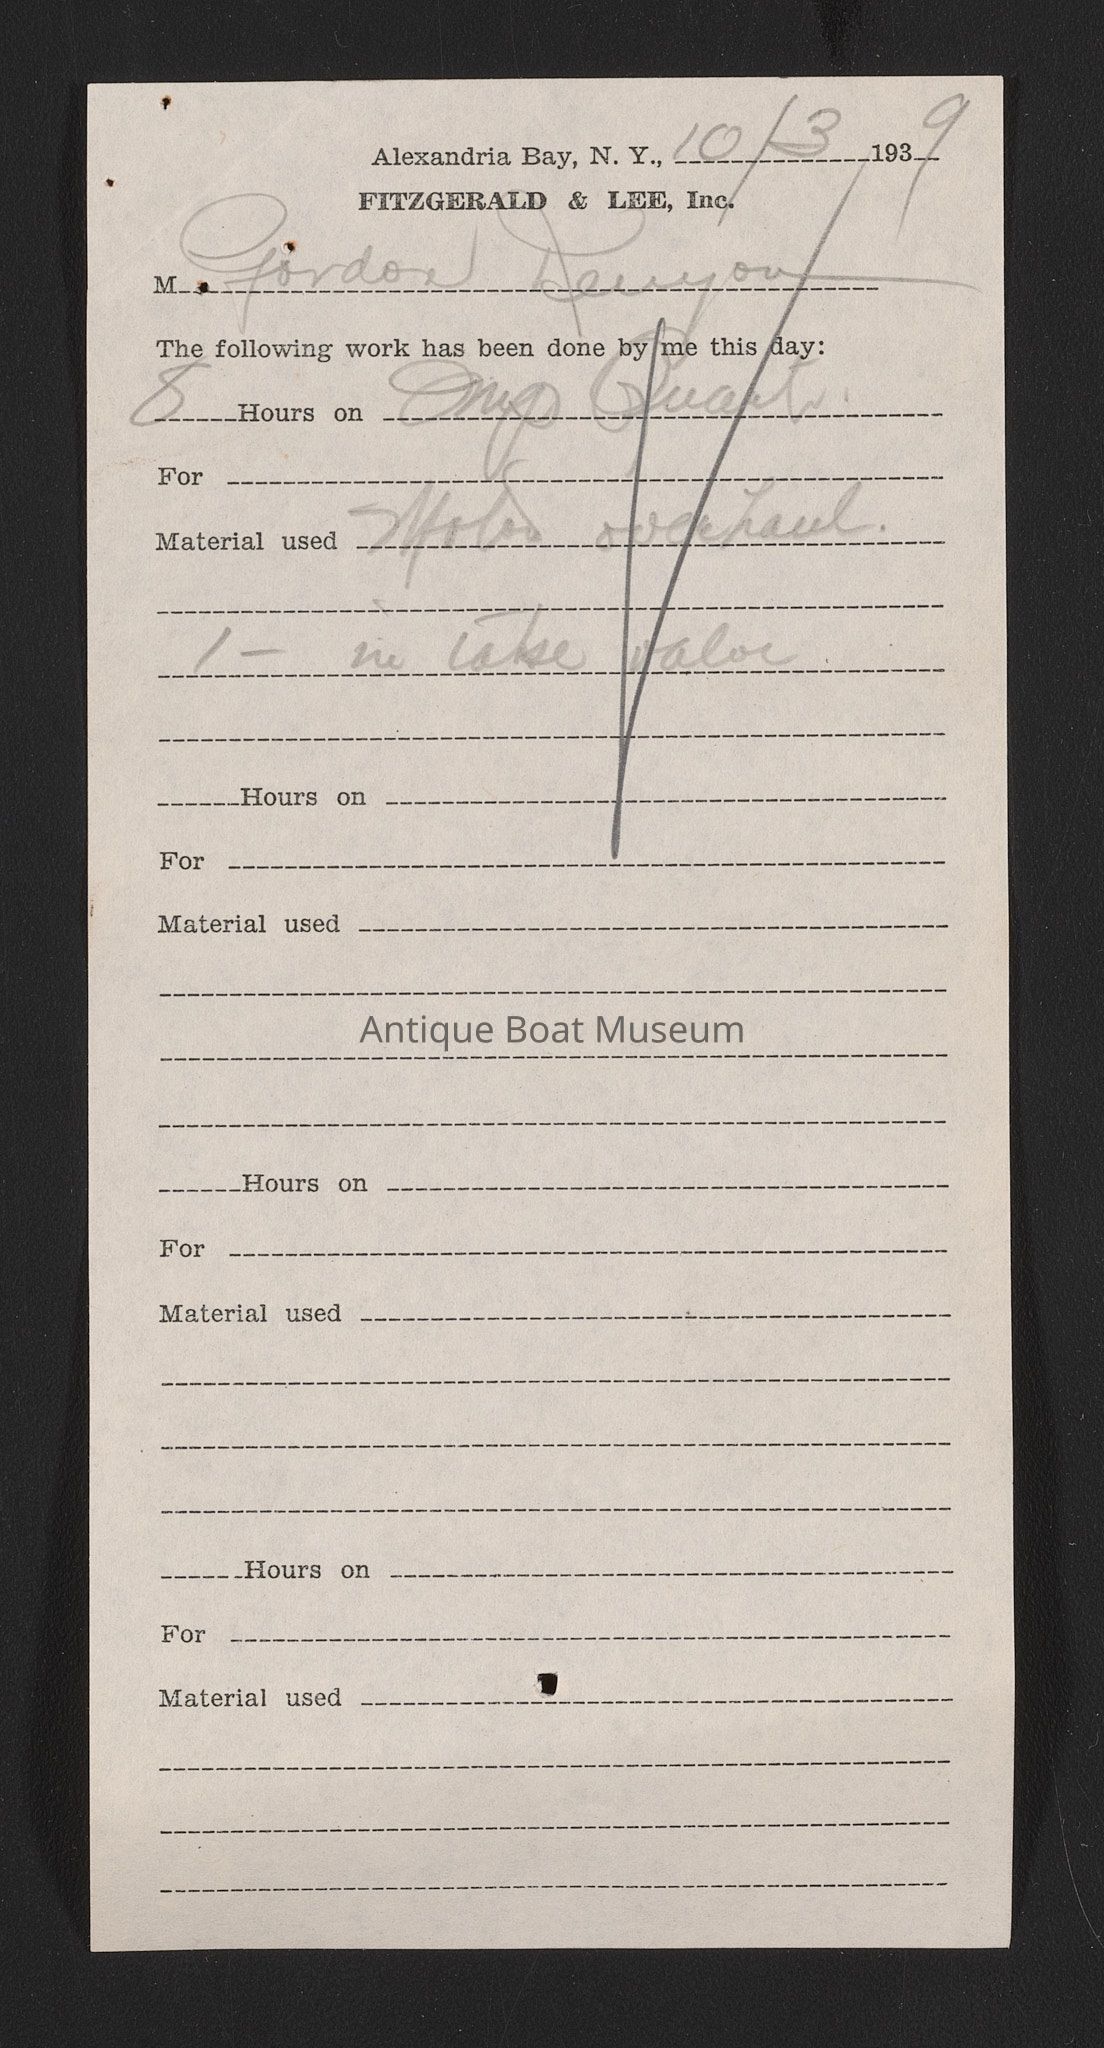 Alexandria Bay, N. Y., 10/3 1939
FITZGERALD & LEE, Inc.
M Gordon Kenyon
The following work has been done by me this day:
8 Hours on
For
Material used Motor overhaul.
1 - in take valve
Hours on
For
Material used
Antique Boat Museum
Hours on
For
Material used
Hours on
For
Material used